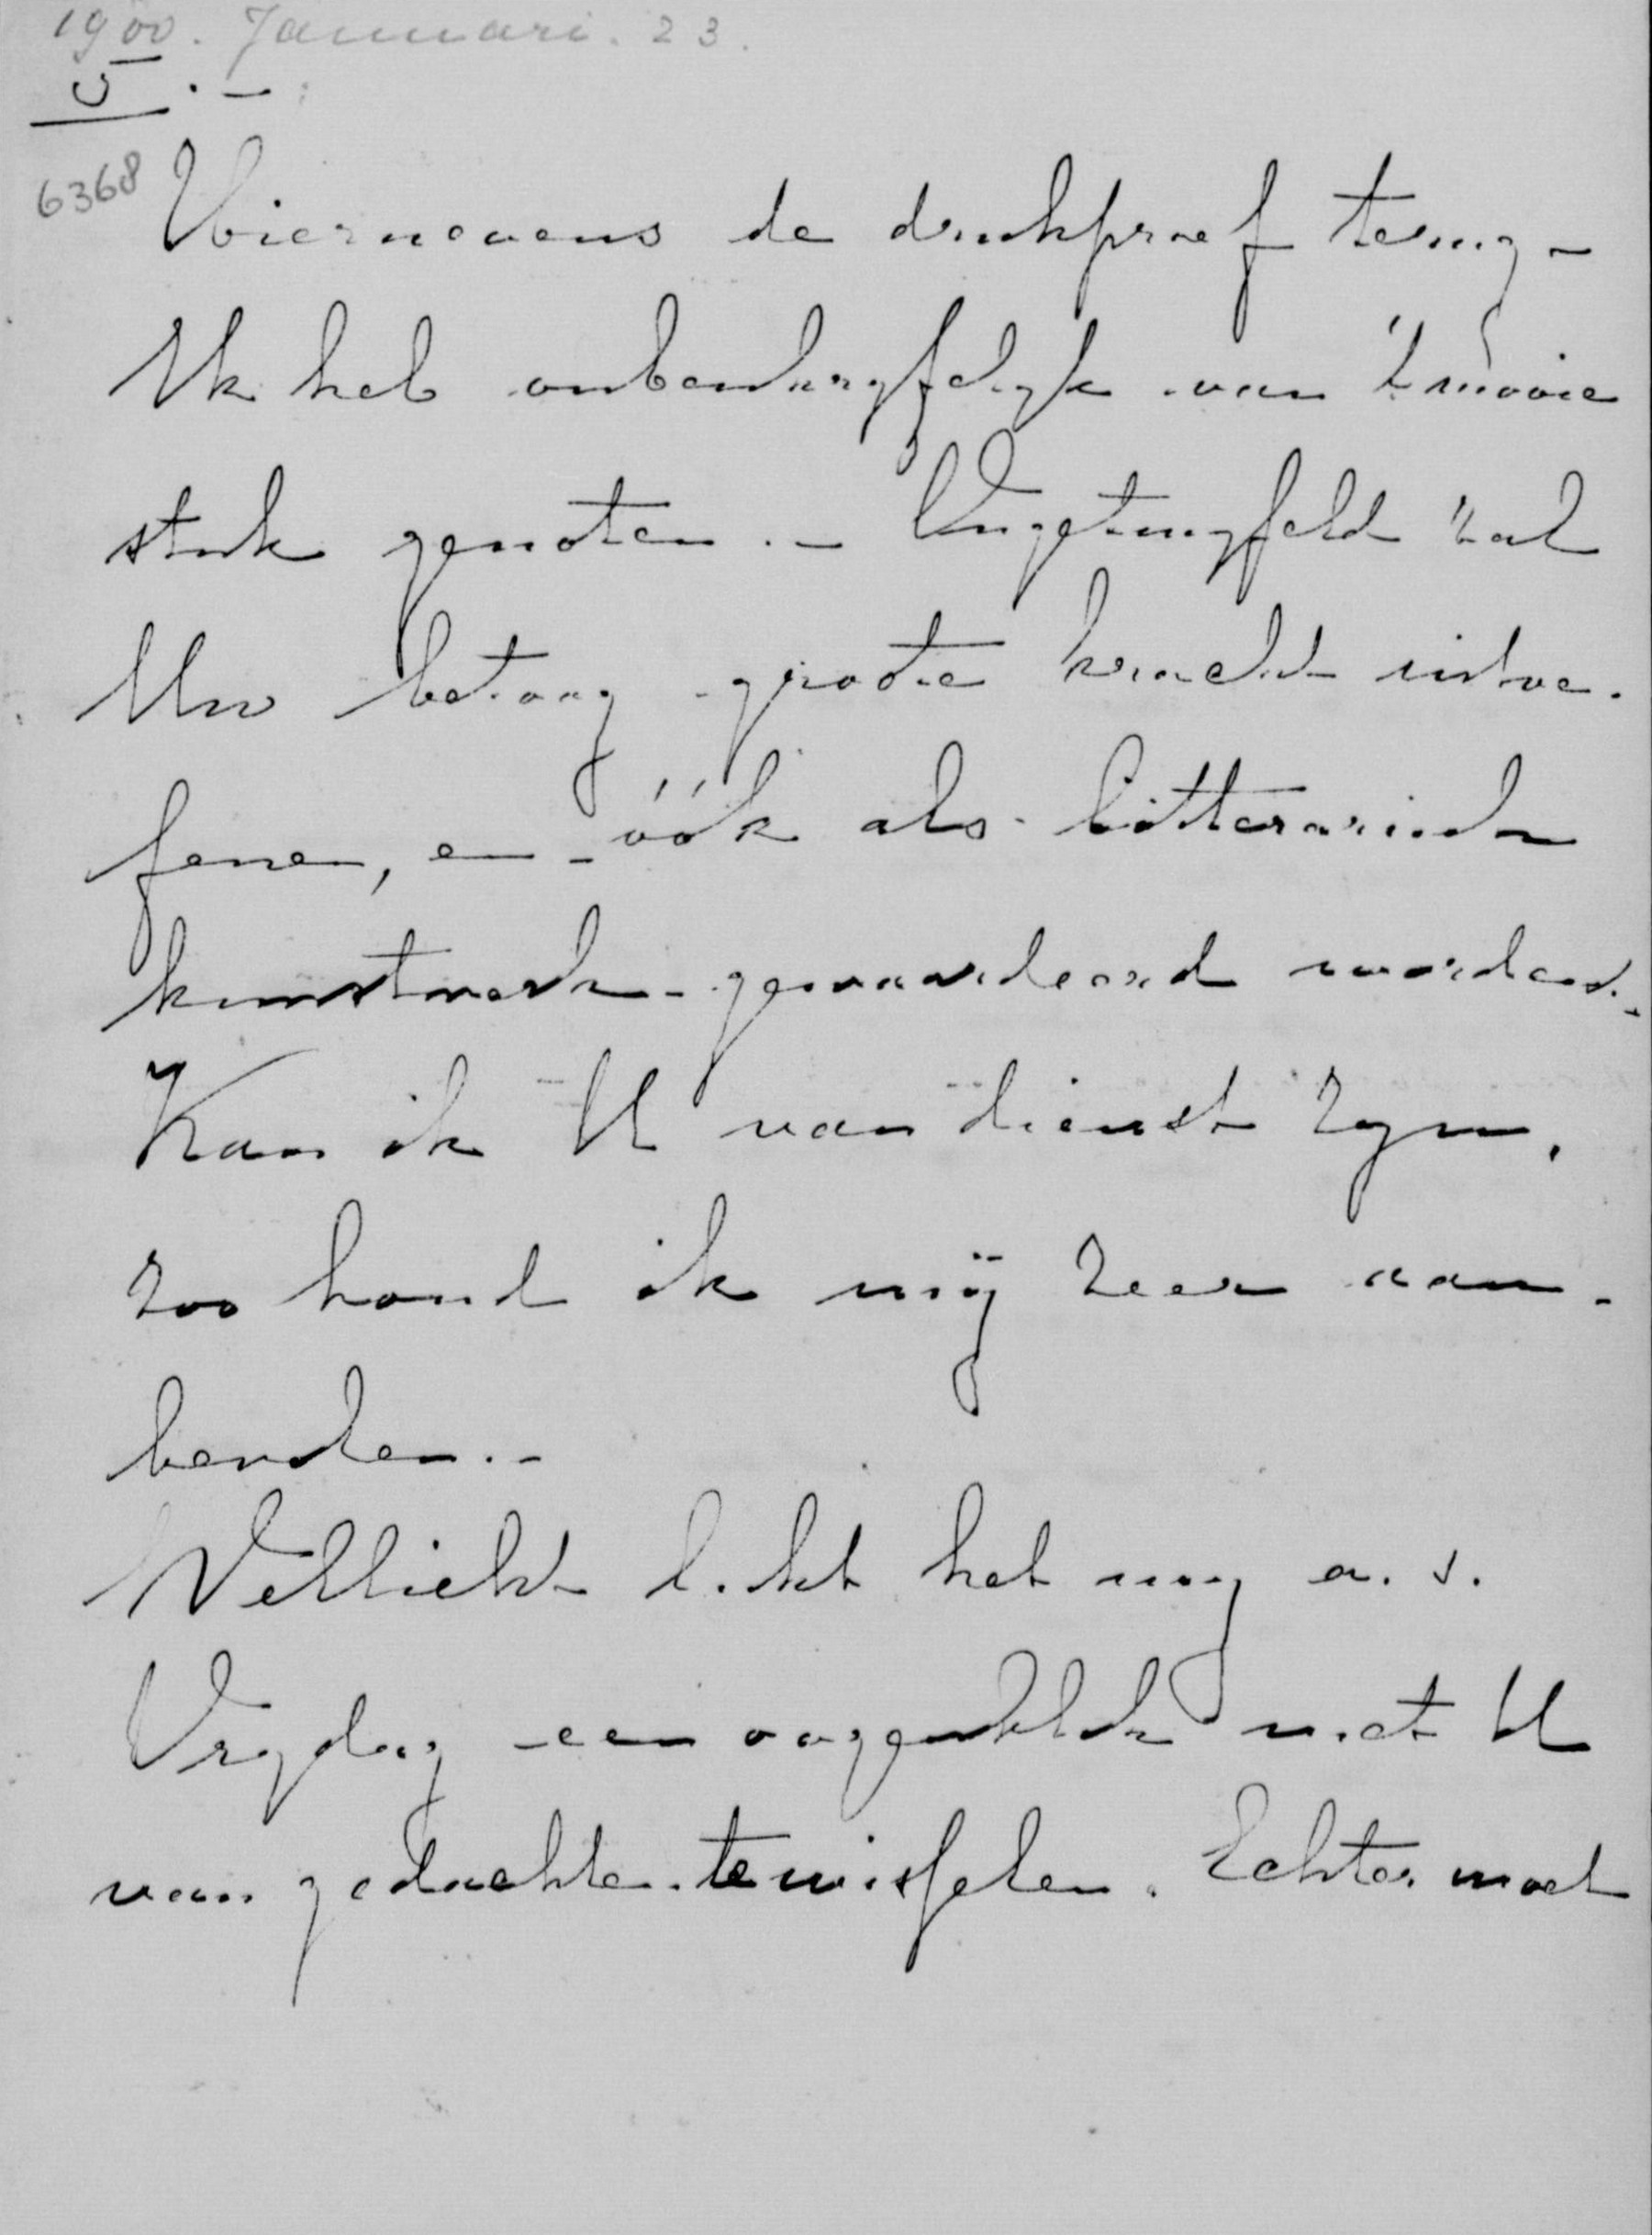 1900. Januari. 23.
6368
Hiernevens de drukproef terug -
Ik heb onbeschryfelyk van 't mooie
stuk genoten. - Ongetwyfeld zal
Uw betoog groote kracht uitoe-
fenen, en óók als litterarisch
kunstwerk gewaardeerd worden. -
Kan ik U van dienst zyn,
zoo houd ik mij zeer aan-
bevolen. -
Wellicht lukt het my a. s.
Vrydag een oogenblik met U
van gedachte te wisselen. Echter moet